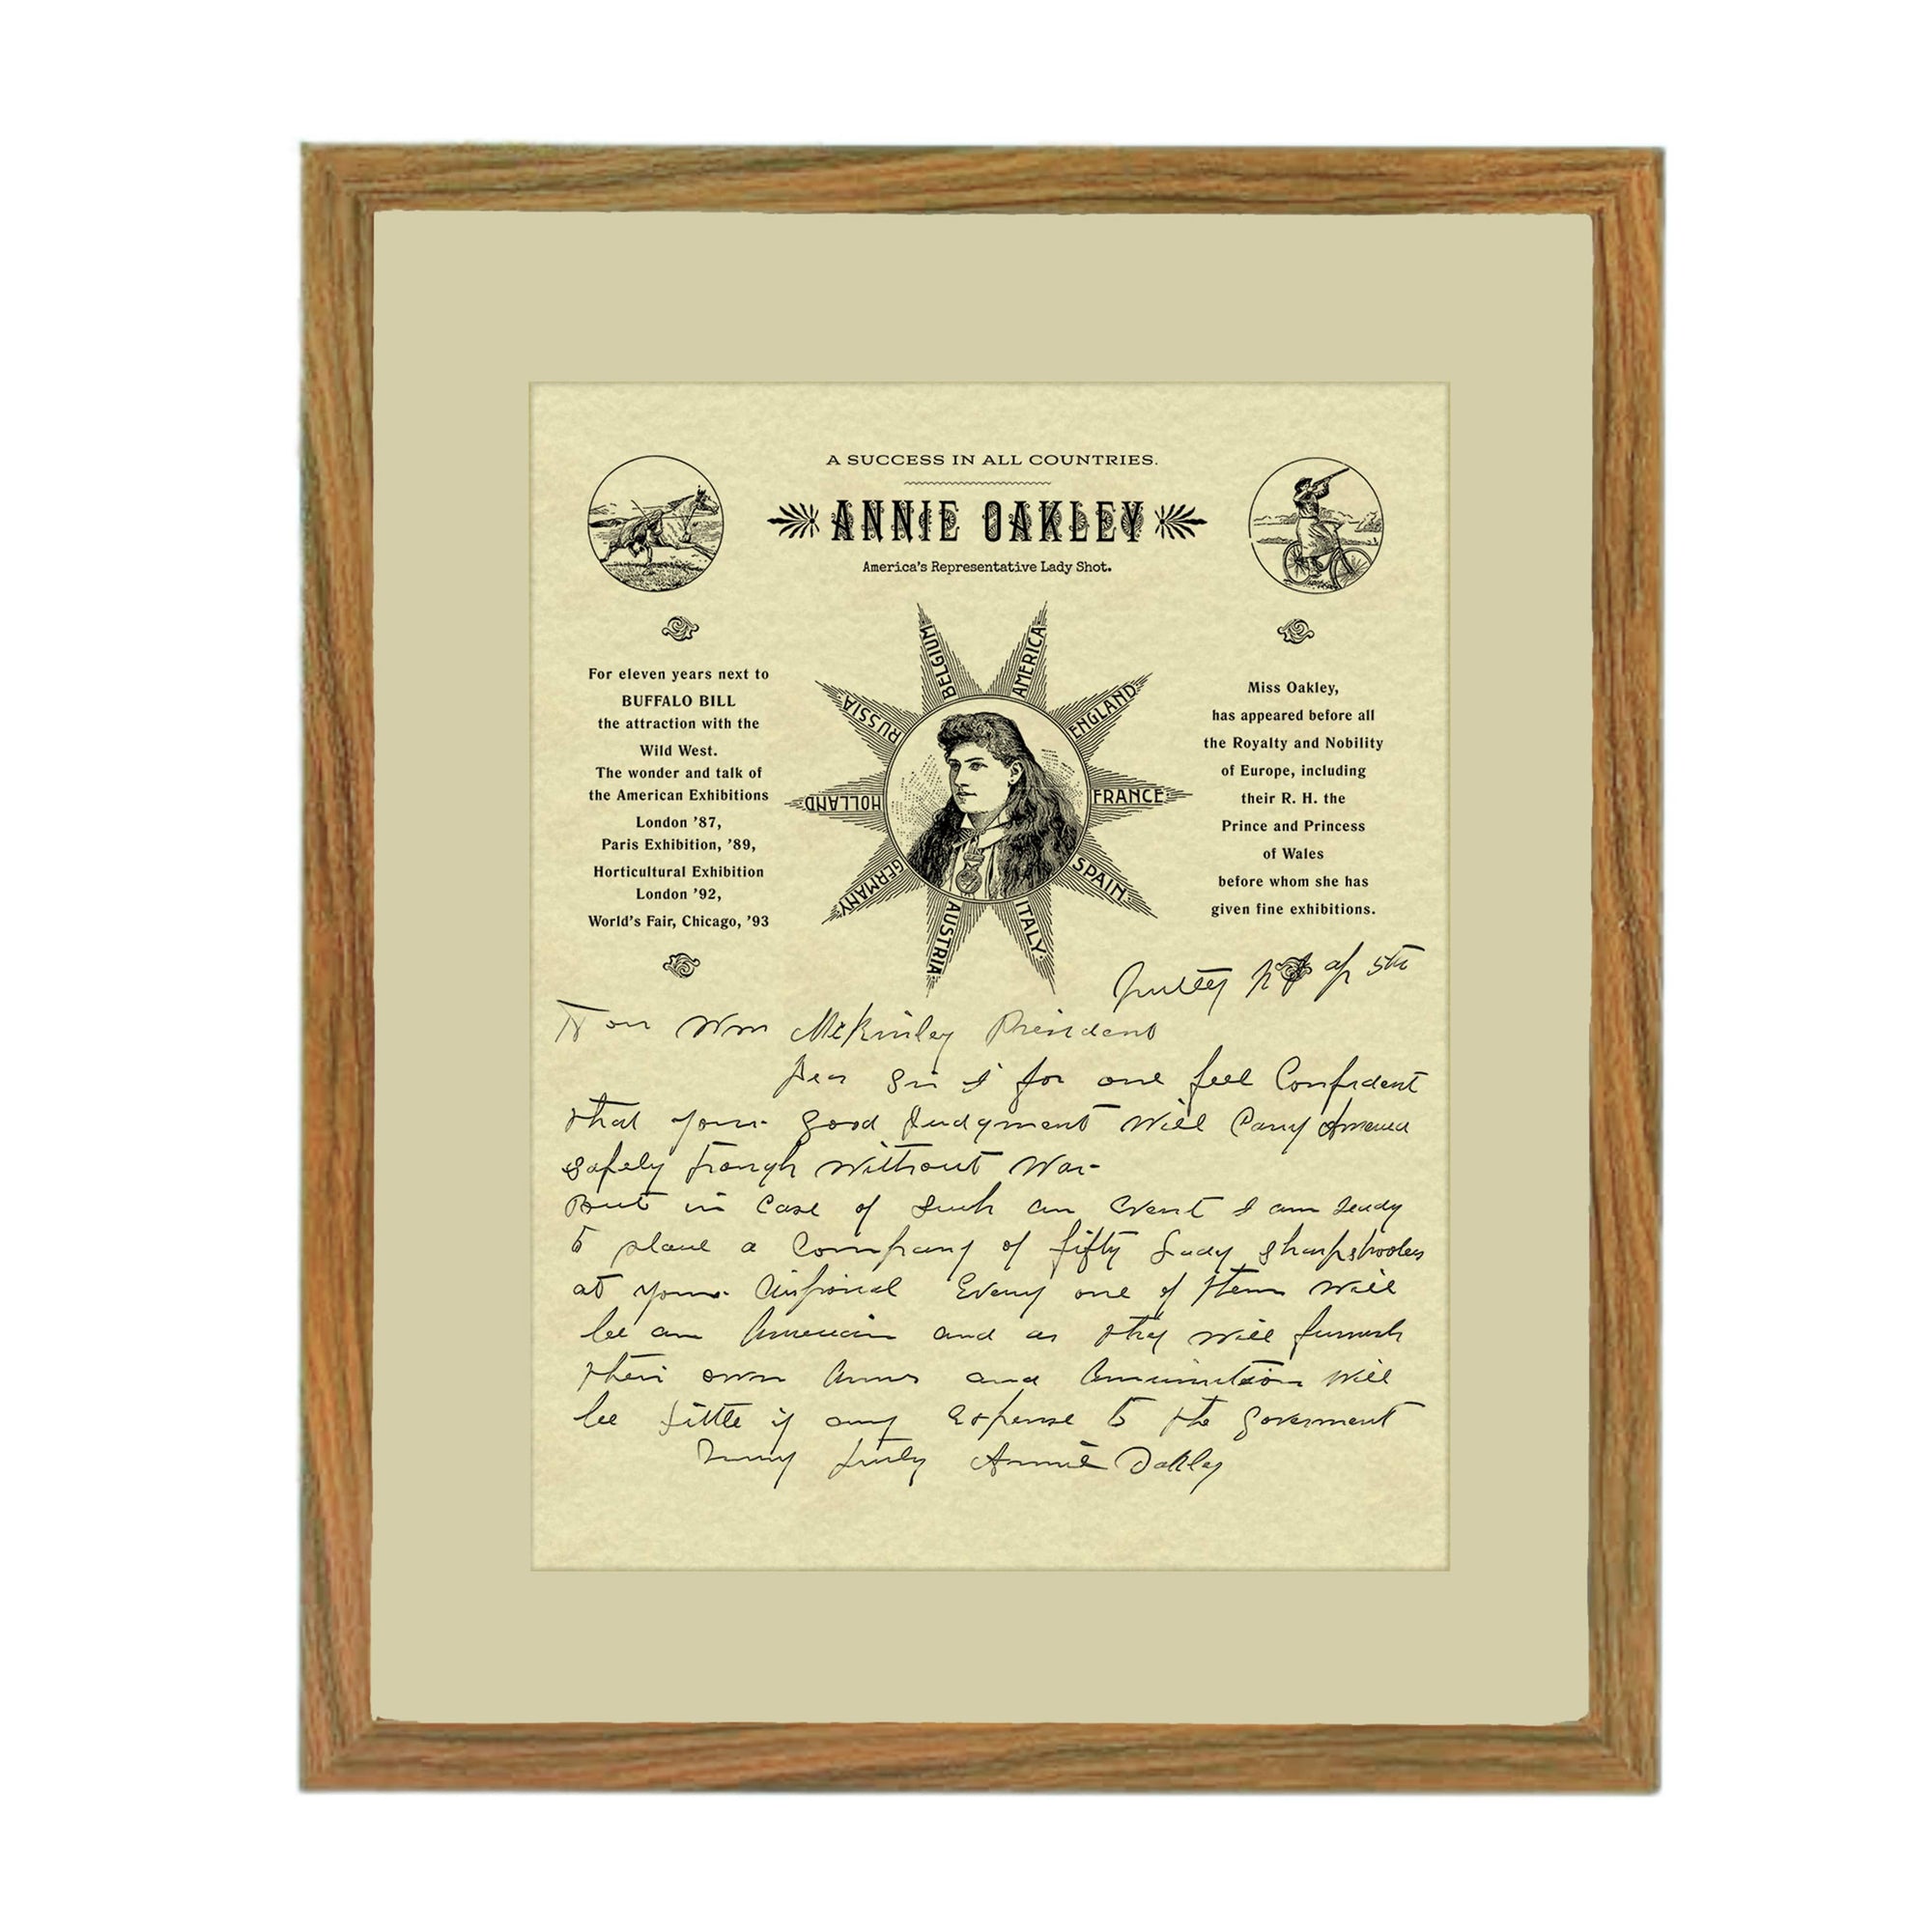 A SUCCESS IN ALL COUNTRIES.
ANNIE OAKLEY
America's Representative Lady Shot.
For eleven years next to
BUFFALO BILL
the attraction with the
Wild West.
The wonder and talk of
the American Exhibitions
London '87,
Paris Exhibition, '89,
Horticultural Exhibition
London '92,
World's Fair, Chicago, '93
BELGIUM
AMERICA
ENGLAND
FRANCE
SPAIN.
ITALY.
AUSTRIA
GERMANY
HOLLAND
RUSSIA
Miss Oakley,
has appeared before all
the Royalty and Nobility
of Europe, including
their R. H. the
Prince and Princess
of Wales
before whom she has
given fine exhibitions.
Nutley ap 5th
Hon Wm McKinley President
Dear Sir I for one feel Confident
that your good Judgment Will Carry America
safely through Without War-
But in Case of Such an Event I am ready
to place a Company of fifty Lady sharpshooters
at your disposal Every one of them Will
be an American and as they Will furnish
their own Arms and Ammunition Will
be little if any Expense to the Goverment
Very truly Annie Oakley